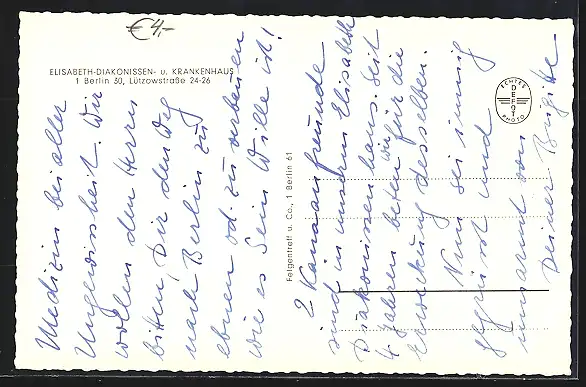 €4,-
ELISABETH-DIAKONISSEN- u. KRANKENHAUS
1 Berlin 30, Lützowstraße 24-26
Medizin bei aller
Ungewissheit. Wir
wollen den Herrn
bitten, Dir den Weg
nach Berlin zu
ebnen od. zu verbauen
wie es Sein Wille ist!
Felgentreff u. Co., 1 Berlin 61
ECHTES
DEFOT
PHOTO
2 Kanaanfreunde
sind in unserm Elisabeth
Diakonissenhaus. Seit
4 Jahren beten wir für die
Erweckung desselben.
Nun sei innig
gegrüsst und
umarmt von
Deiner Brigitte